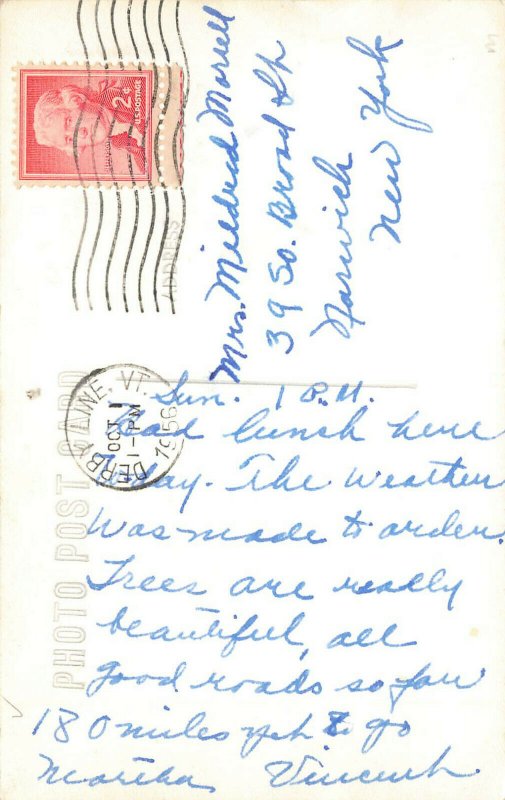 2¢
U.S. POSTAGE
ADDRESS
Mrs. Mildred Morrell
39 So. Broad St
Norwich
New York
DERBY LINE, VT.
OCT 1
1-PM
1956
PHOTO POST CARD
Sun. 1 P.M.
Had lunch here
today. The Weather
was made to order.
Trees are really
beautiful, all
good roads so far
180 miles yet to go
Martha Vincent